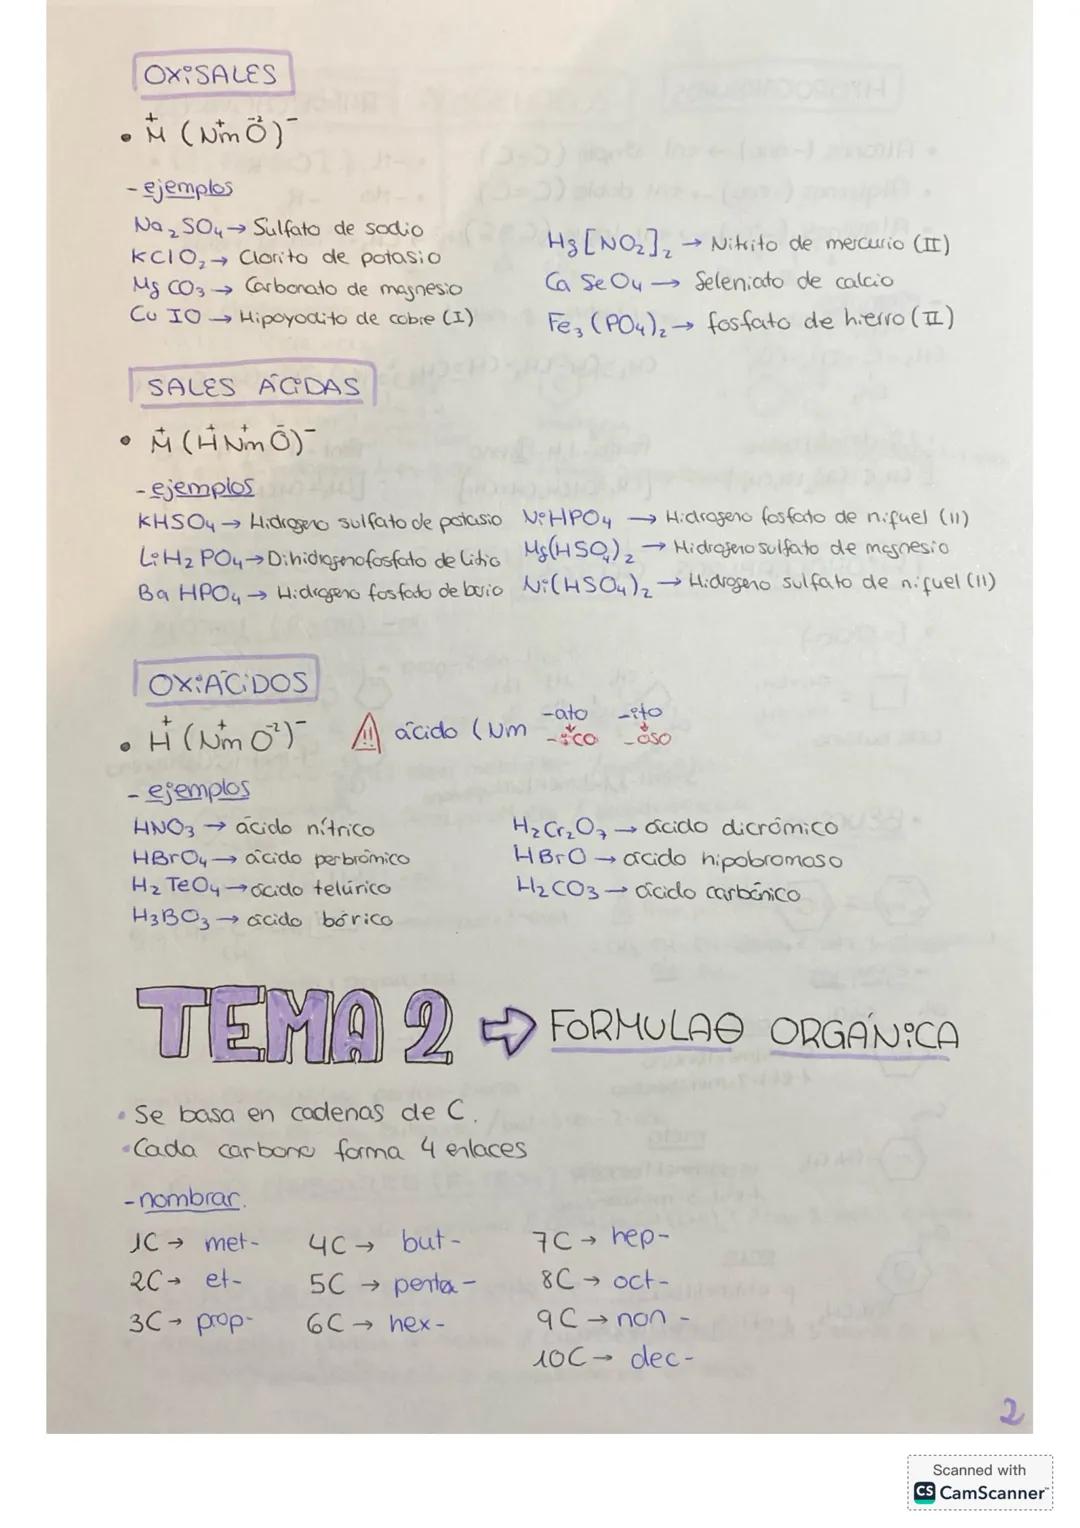 OXISALES
• M⁺ (Nm⁺ O⁻²)⁻
- ejemplos
Na₂SO₄ → Sulfato de sodio
KClO₂ → Clorito de potasio
Mg CO₃ → Carbonato de magnesio
Cu IO → Hipoyodito de cobre (I)
Hg [NO₂]₂ → Nitrito de mercurio (II)
Ca SeO₄ → Seleniato de calcio
Fe₃ (PO₄)₂ → fosfato de hierro (II)
SALES ÁCIDAS
• M⁺ (H⁺ Nm⁺ O⁻)⁻
- ejemplos
KHSO₄ → Hidrogeno sulfato de potasio
LiH₂ PO₄ → Dihidrogenofosfato de litio
Ba HPO₄ → Hidrogeno fosfato de bario
NiHPO₄ → Hidrogeno fosfato de niquel (II)
Mg(HSO₄)₂ → Hidrogeno sulfato de magnesio
Ni(HSO₄)₂ → Hidrogeno sulfato de niquel (II)
OXIÁCIDOS
• H⁺ (Nm⁺ O⁻²)⁻ ⚠ ácido (Nm -ato -ito
-ico -oso
- ejemplos
HNO₃ → ácido nítrico
HBrO₄ → ácido perbrómico
H₂ TeO₄ → ácido telúrico
H₃BO₃ → ácido bórico
H₂Cr₂O₇ → ácido dicrómico
HBrO → ácido hipobromoso
H₂CO₃ → ácido carbónico
TEMA 2 ⇨ FORMULAΘ ORGÁNICA
• Se basa en cadenas de C.
• Cada carbono forma 4 enlaces
- nombrar.
1C → met- 4C → but- 7C → hep-
2C → et- 5C → penta- 8C → oct-
3C → prop- 6C → hex- 9C → non-
10C → dec-
2
Scanned with
CS CamScanner™